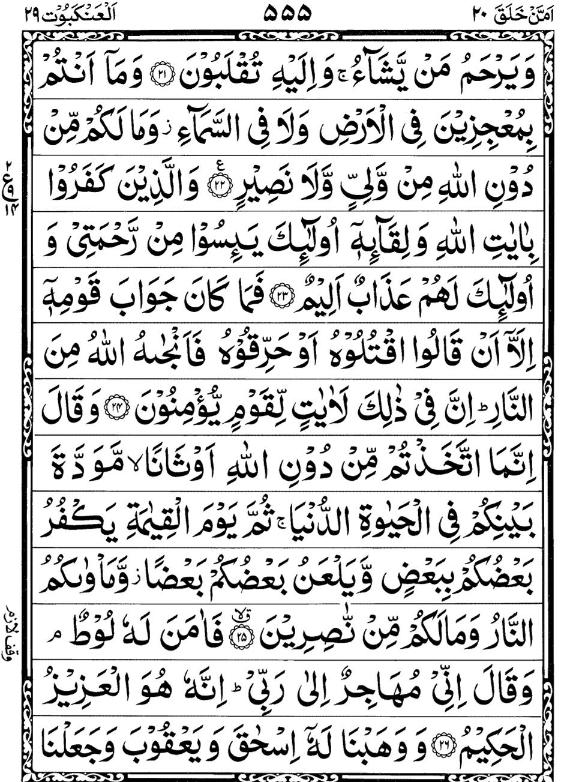 اَمَّنْ خَلَقَ ٢٠ ۵۵۵ اَلْعَنْكَبُوْت ٢٩
وَيَرْحَمُ مَنْ يَّشَآءُ ۚ وَاِلَيْهِ تُقْلَبُوْنَ ﴿۲۱﴾ وَمَاۤ اَنْتُمْ
بِمُعْجِزِيْنَ فِى الْاَرْضِ وَلَا فِى السَّمَآءِ ز وَمَا لَكُمْ مِّنْ
دُوْنِ اللّٰهِ مِنْ وَّلِيٍّ وَّلَا نَصِيْرٍ ﴿۲۲﴾ ع وَالَّذِيْنَ كَفَرُوْا
بِاٰيٰتِ اللّٰهِ وَلِقَآىِٕهٖۤ اُولٰٓىِٕكَ يَىِٕسُوْا مِنْ رَّحْمَتِىْ وَ
اُولٰٓىِٕكَ لَهُمْ عَذَابٌ اَلِيْمٌ ﴿۲۳﴾ فَمَا كَانَ جَوَابَ قَوْمِهٖۤ
اِلَّاۤ اَنْ قَالُوا اقْتُلُوْهُ اَوْ حَرِّقُوْهُ فَاَنْجٰىهُ اللّٰهُ مِنَ
النَّارِ ؕ اِنَّ فِىْ ذٰلِكَ لَاٰيٰتٍ لِّقَوْمٍ يُّؤْمِنُوْنَ ﴿۲۴﴾ وَقَالَ
اِنَّمَا اتَّخَذْتُمْ مِّنْ دُوْنِ اللّٰهِ اَوْثَانًا ۙ مَّوَدَّةَ
بَيْنِكُمْ فِى الْحَيٰوةِ الدُّنْيَا ۚ ثُمَّ يَوْمَ الْقِيٰمَةِ يَكْفُرُ
بَعْضُكُمْ بِبَعْضٍ وَّيَلْعَنُ بَعْضُكُمْ بَعْضًا ز وَّمَاْوٰىكُمُ
النَّارُ وَمَا لَكُمْ مِّنْ نّٰصِرِيْنَ ﴿۲۵﴾ فَاٰمَنَ لَهٗ لُوْطٌ ۘ
وَقَالَ اِنِّىْ مُهَاجِرٌ اِلٰى رَبِّىْ ؕ اِنَّهٗ هُوَ الْعَزِيْزُ
الْحَكِيْمُ ﴿۲۶﴾ وَوَهَبْنَا لَهٗۤ اِسْحٰقَ وَيَعْقُوْبَ وَجَعَلْنَا
٢
ع ٩
١۴
وقف لازم